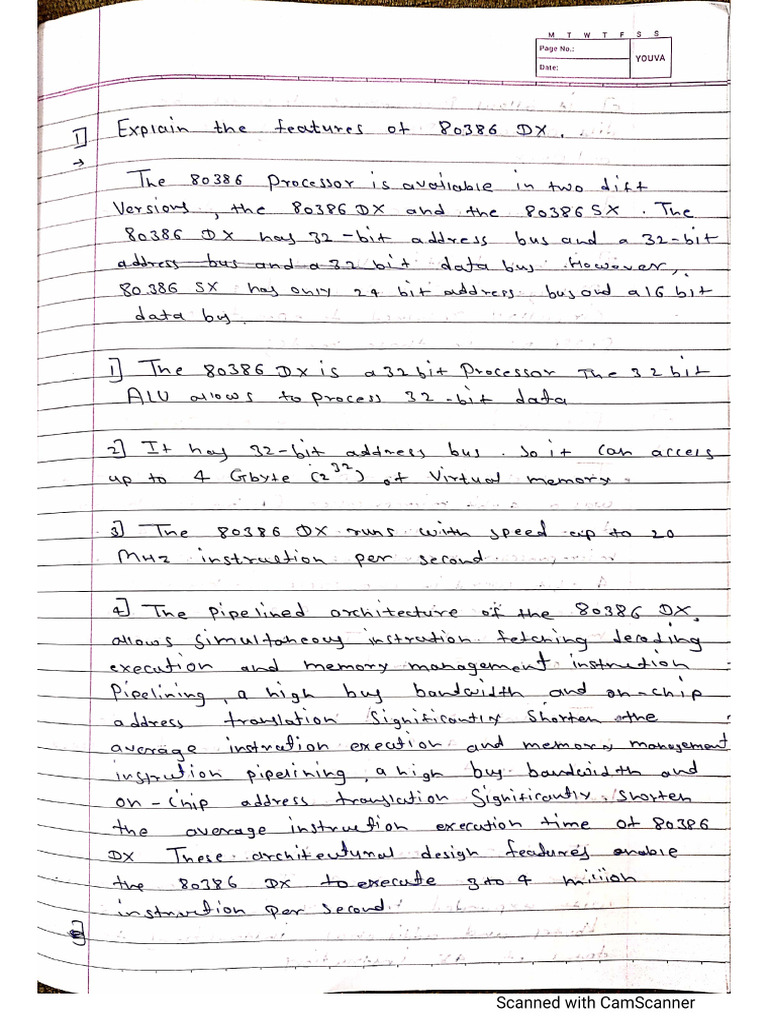 M T W T F S S
Page No.:
YOUVA
Date:
1] Explain the features of 80386 DX.
→
The 80386 processor is available in two diff
Versions, the 80386 DX and the 80386 SX. The
80386 DX has 32-bit address bus and a 32-bit
address bus and a 32 bit data bus. However,
80386 SX has only 24 bit address bus and a 16 bit
data bus.
1] The 80386 DX is a 32 bit Processor The 32 bit
ALU allows to process 32-bit data
2] It has 32-bit address bus. So it can access
up to 4 Gbyte (2³²) of Virtual memory.
3] The 80386 DX runs with speed up to 20
MHz instruction per second.
4] The pipelined architecture of the 80386 DX,
allows simultaneous instration fetching decoding
execution and memory management instruction
Pipelining, a high bus bandwidth and on-chip
address translation Significantly Shorten the
average instration execution and memory management
instrution pipelining, a high bus bandwidth and
on-chip address translation Significantly. Shorten
the average instruction execution time of 80386
DX These architectural design features enable
the 80386 DX to execute 3 to 4 million
instruction per second.
Scanned with CamScanner